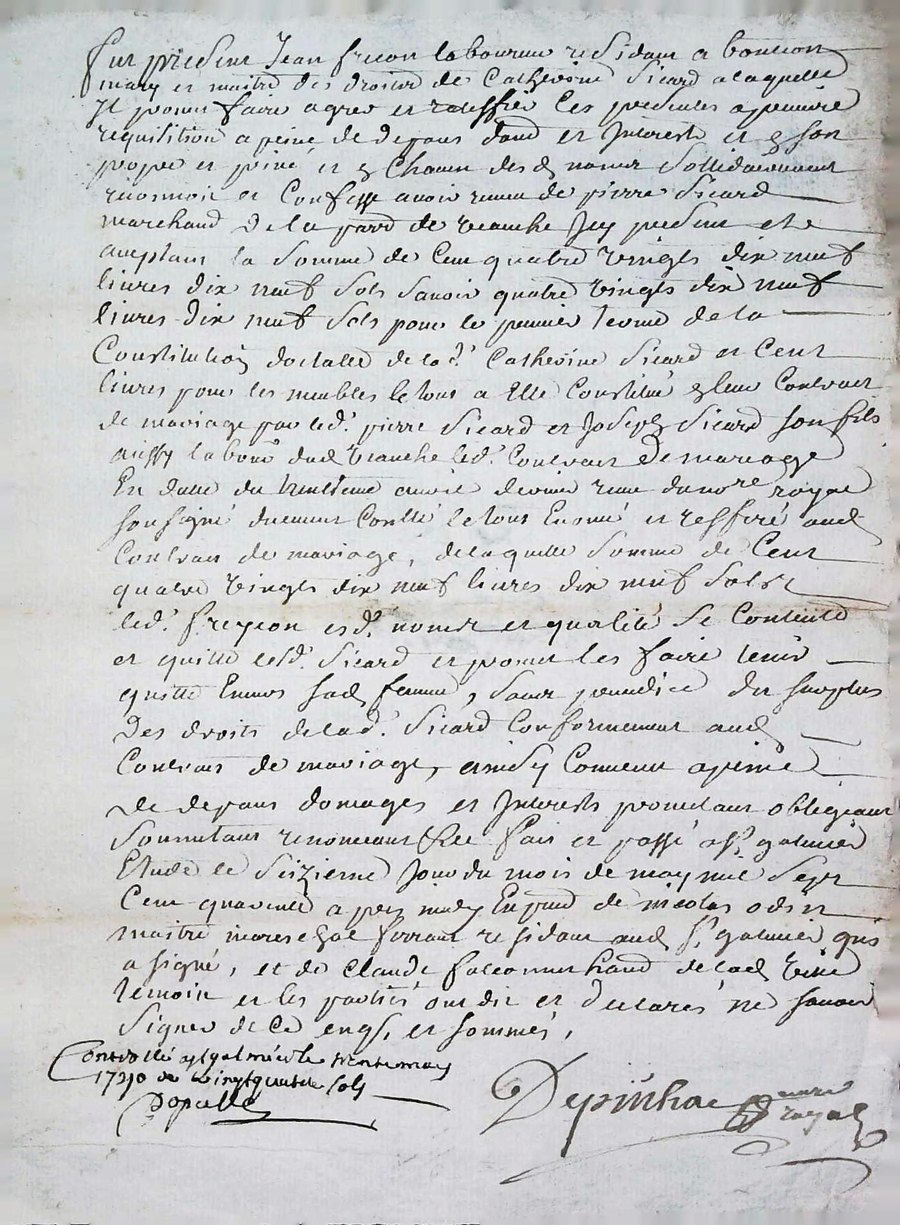 fut présent Jean freion laboureur residant a bouteon
mary et maitre des droits de Catherine Sicard a laquelle
Il promet faire agreer et ratiffier les presentes a premiere
requisition a peine de depans dand et Interests et p son
propre et privé et p Chacun desd noms sollidairement
reconnoit et Confesse avoir receu de pierre Sicard
marchand de la parr de veauche Icy present et
aceptant la somme de Cent quatre vingts dix neuf
livres dix neuf sols savoir quatre vingts dix neuf
livres dix neuf sols pour le premier terme de la
Constitution doctalle de lad. Catherine Sicard et Cent
livres pour les meubles le tout a Elle Constitué p leur Contract
de mariage par led. pierre Sicard et Joseph Sicard son fils
aussy labour dud veauche led. Contract de mariage
En datte du huitieme avril dernier receu du nore royal
soussigné duement Contllé le tout Enoncé et resseré aud
Contract de mariage, de laquelle somme de Cent
quatre vingts dix neuf livres dix neuf sols
led. freyeon esd. noms et qualité se Contente
et quitte lesd. Sicard et promet les faire tenir
quitte Envers sad femme, sauf prejudice du surplus
des droits de lad. Sicard Conformement aud
Contract de mariage, ainsy Convenu a peine
de depans domages et Interests promettant obligeant
soumettant renonceant &ce fait et passé a st. galmier
Etude le seizieme Jour du mois de may mil sept
Cent quarente apres midy En pnce de nicolas odin
maitre mareschal ferrant residant aud st. galmier qui
a signé, et de Claude falcon marchand de lad ville
temoins et les parties ont dit et declaré ne savoir
signer de ce enqs. et sommés,
Controllé a st galmier le trente may
1740 Rx vingt quatre sols
Depinhac nore
royal